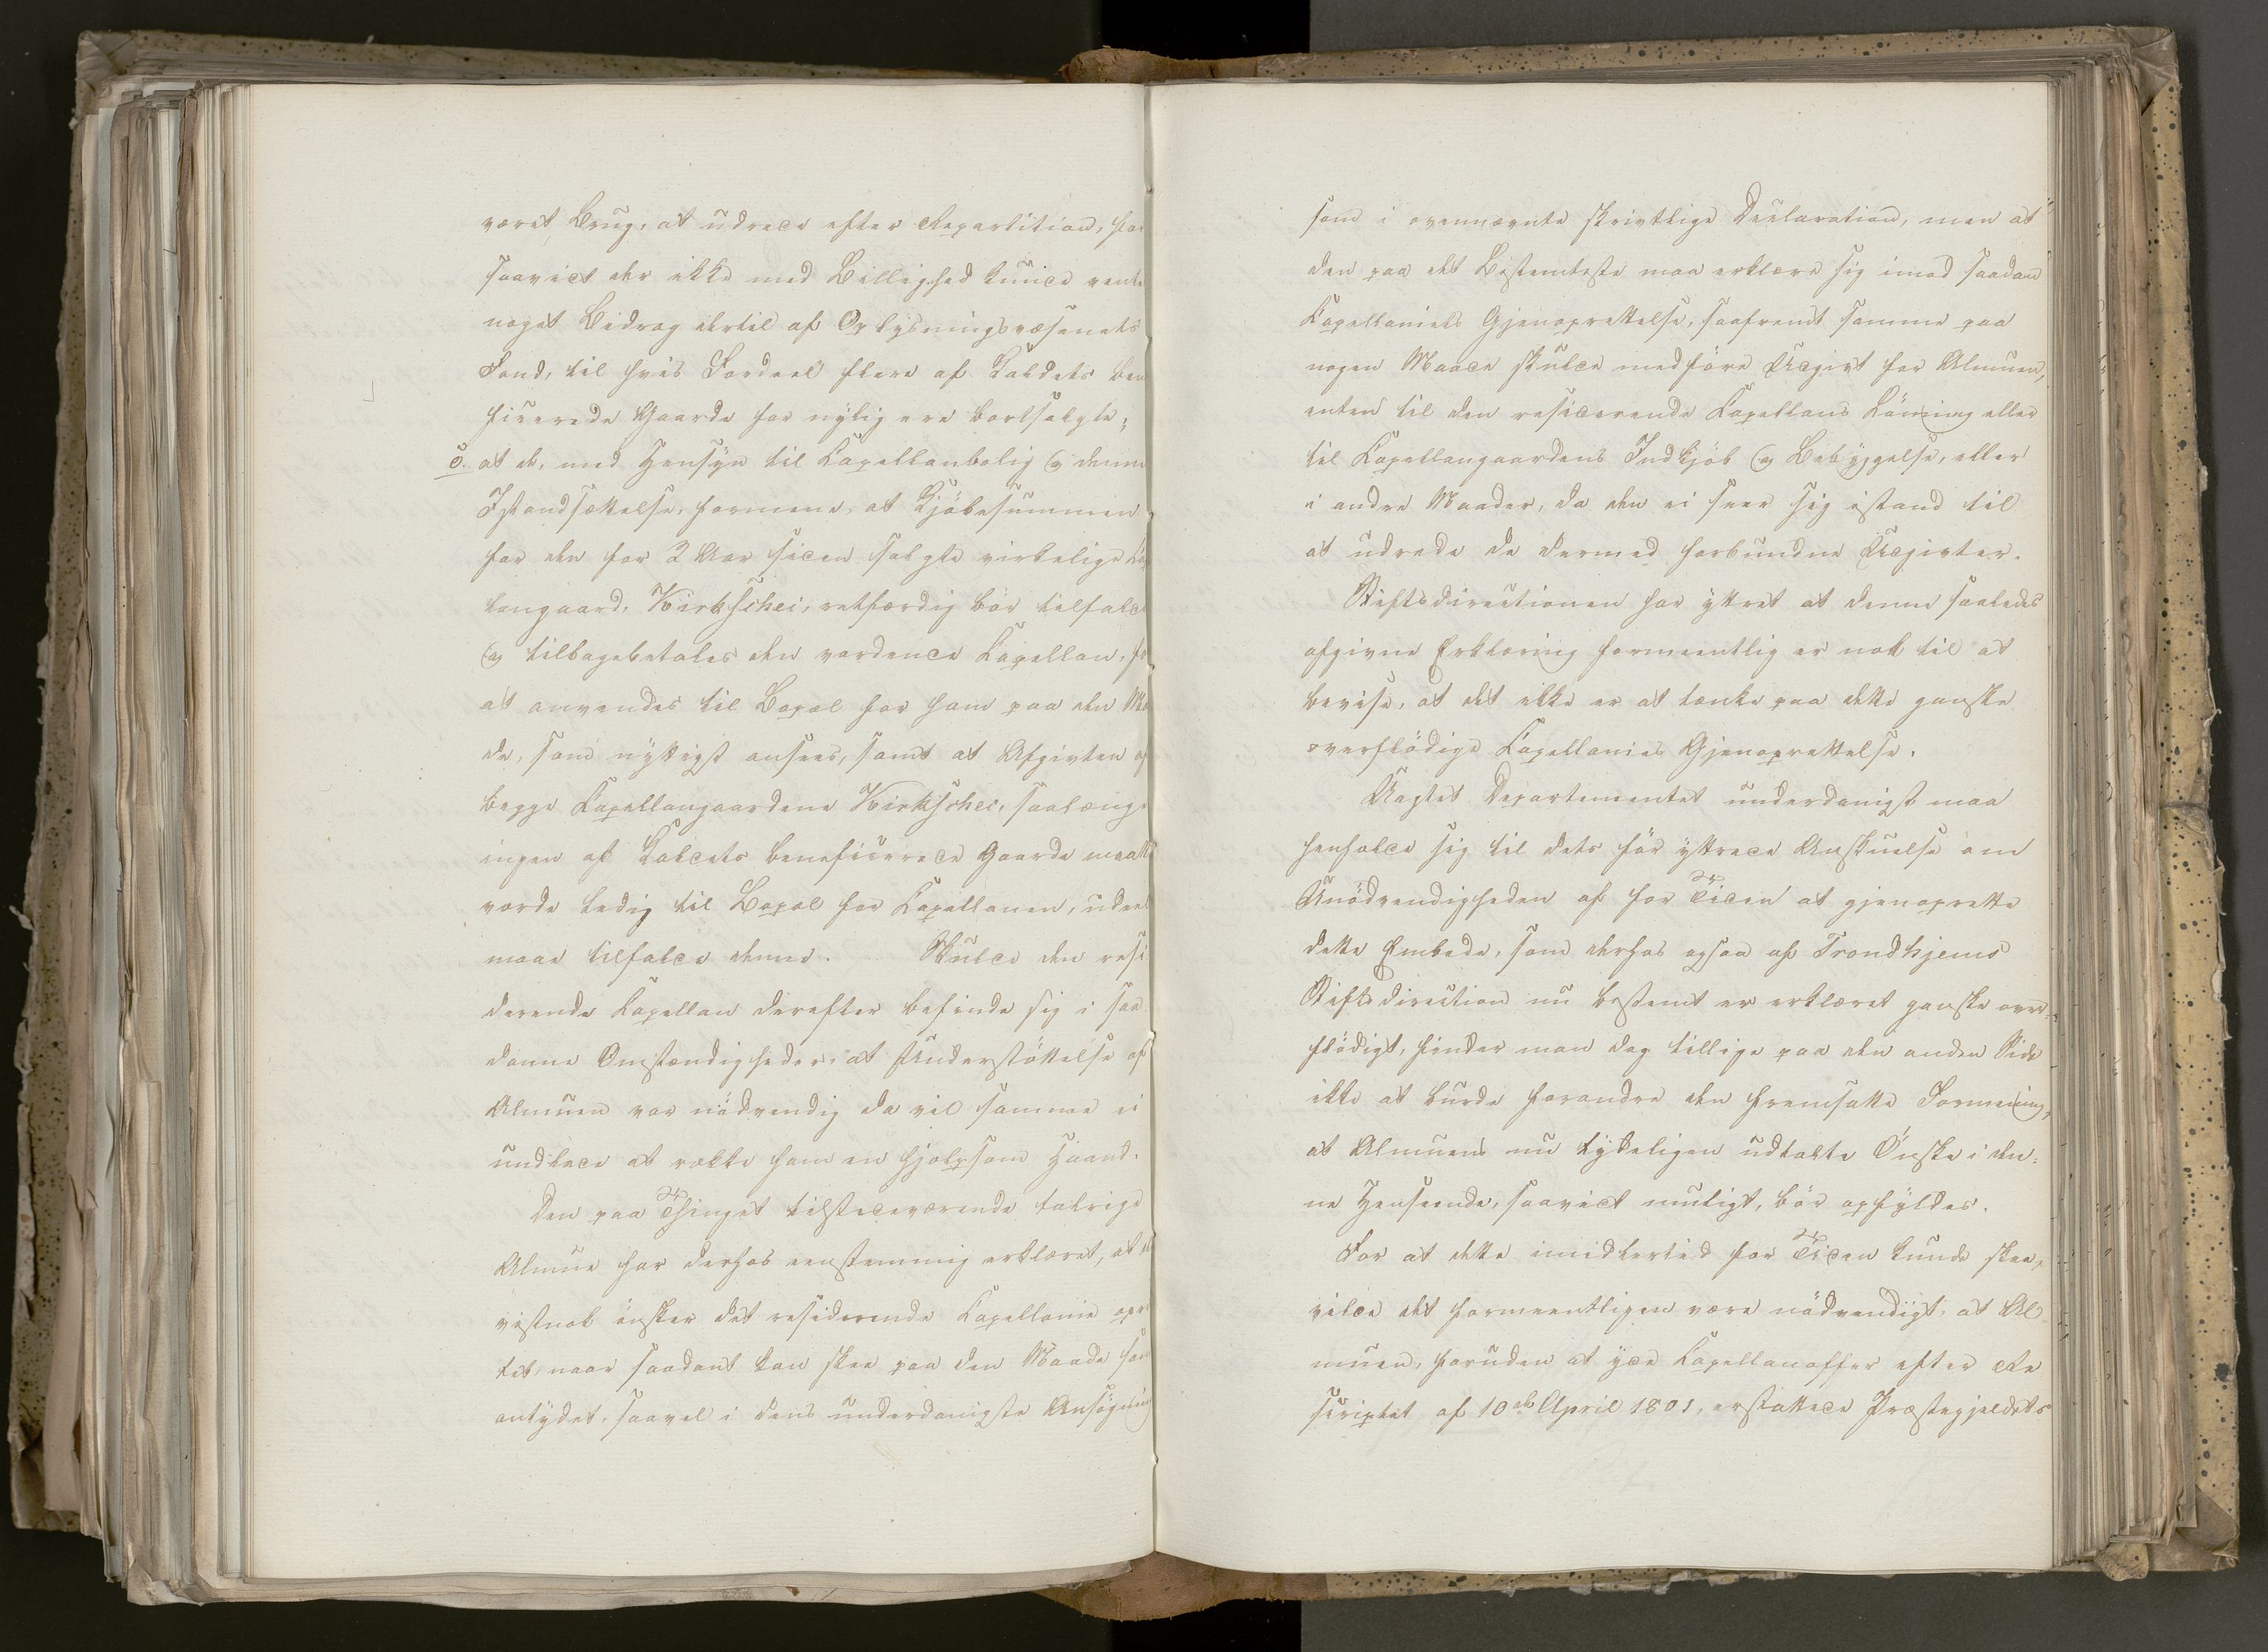 været Brug, at udrede efter Repartition, for
saavidt der ikke med Billighed kunde vente
noget Bidrag dertil af Oplysningsvæsenets
Fond, til hvis Fordeel flere af Kaldets bene
ficerede Gaarde for nylig ere bortsolgte;
5. at de, med Hensyn til Capellanbolig og denne
Istandsættelse, formene, at Kjöbesummen
for den for 2 Aar siden solgte virkelige Ca
langaard, Kirkschei, retfærdig bör tilfalde
og tilbagebetales den vordende Capellan, for
at anvendes til Bopæl for ham paa den Maa
de, som nyttigst ansees, samt at Afgivten af
begge Capellangaardene Kirkschei, saalænge
ingen af Kaldets beneficerede Gaarde maatte
vorde ledig til Bopæl for Capellanen, uden
maae tilfalde denne. Skulde den resi
derende Capellan derefter befinde sig i saa
danne Omstændigheder, at Understöttelse af
Almuen var nödvendig da vil samme ei
undlade at række ham en hjelpsom Haand.
Den paa Thinget tilstedeværende talrige
Almue har derhos eenstemmig erklæret, at den
vistnok önsker det residerende Capellanie opret
tet, naar saadant kan skee paa den Maade som
antydet, saavel i dens underdanigste Ansögning
som i ovennævnte skrivtlige Declaration, men at
den paa det Bestemteste maa erklære sig imod saadan
Capellaniets Gjenoprettelse, saafremt samme paa
nogen Maade skulde medföre Udgivt for Almuen,
enten til den residerende Capellans Lönning eller
til Capellangaardens Indkjöb og Bebyggelse, eller
i andre Maader, da den ei seer sig istand til
at udrede de dermed forbundne Udgivter.
Stiftsdirectionen har yttret at denne saaledes
afgivne Erklæring formeentlig er nok til at
bevise, at det ikke er at tænke paa dette ganske
overflödige Capellanies Gjenoprettelse.
Uagtet Departementet underdanigst maa
henholde sig til dets för yttrede Anskuelse om
Unödvendigheden af for Tiden at gjenoprette
dette Embede, som derhos ogsaa af Trondhjems
Stiftsdirection nu bestemt er erklæret ganske over-
flödigt, finder man dog tillige paa den anden Side
ikke at burde forandre den fremsatte Formening,
at Almuens nu tydeligen udtalte Önske i den-
ne Henseende, saavidt muligt, bör opfyldes.
For at dette imidlertid for Tiden kunde skee,
vilde det formeentligen være nödvendigt, at Al-
muen, foruden at yde Capellanoffer efter Re
scriptet af 10de April 1801, erstattede Præstegjeldets